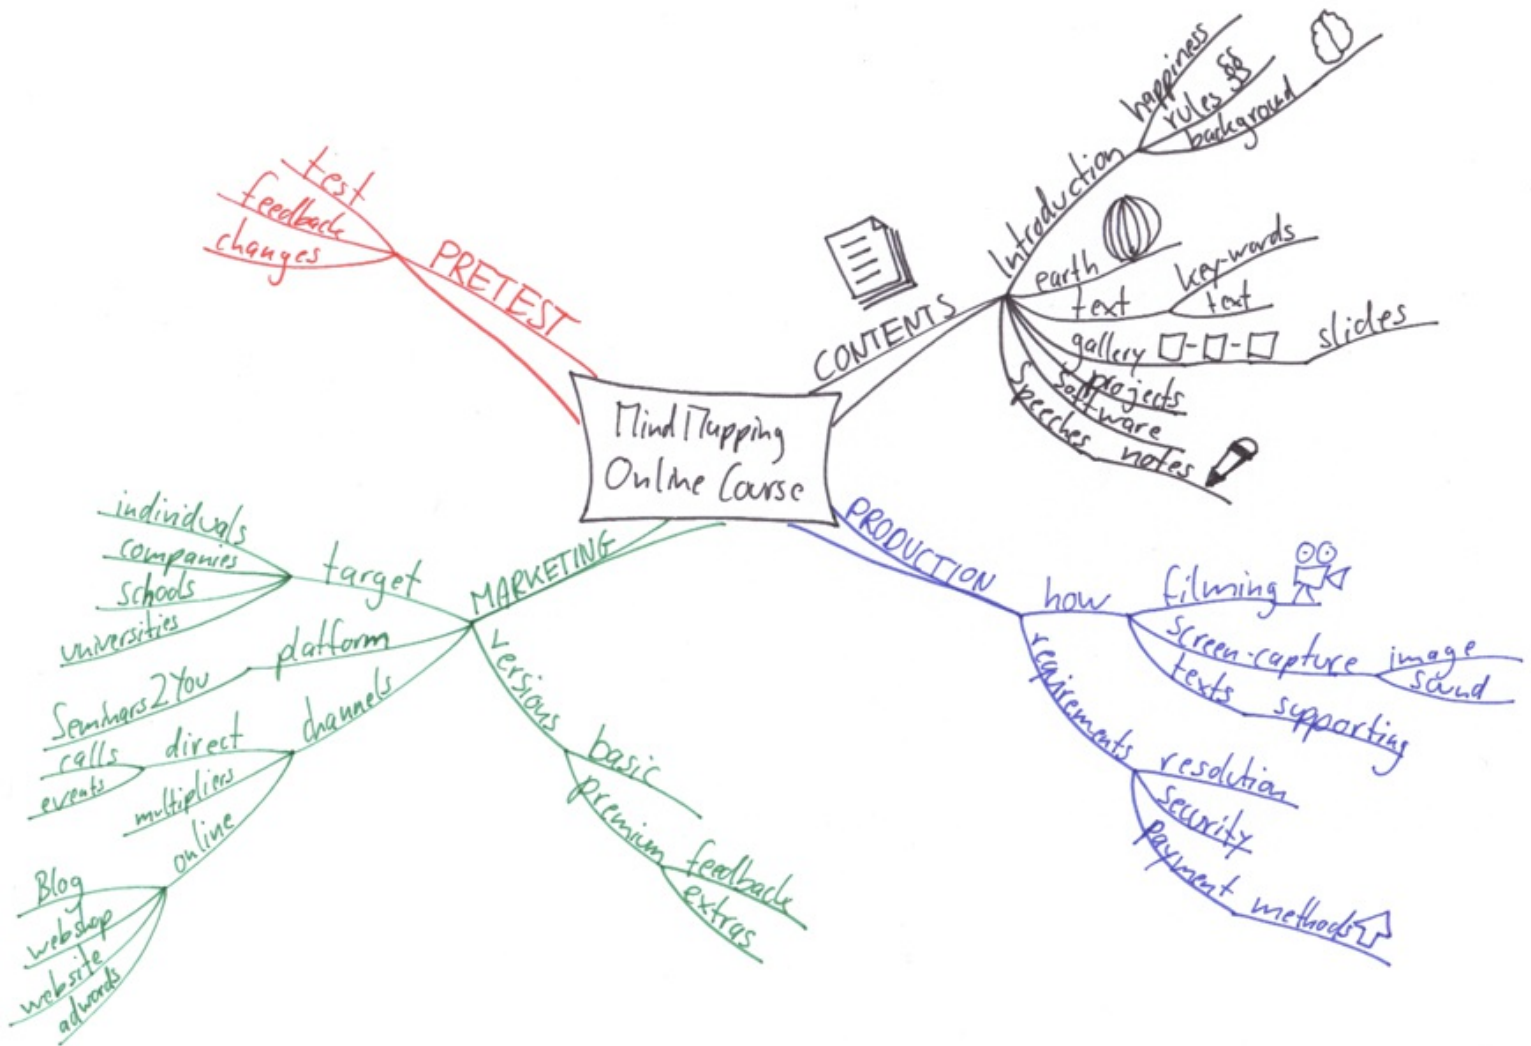 MindMapping
Online Course
CONTENTS
Introduction
happiness
rules §§
background
earth
text
key-words
text
gallery
slides
projects
software
speeches
notes
PRODUCTION
how
filming
screen-capture
image
sound
texts
supporting
requirements
resolution
security
payment
methods
MARKETING
versions
basic
premium
feedback
extras
target
individuals
companies
schools
universities
platform
Seminars2You
channels
direct
calls
events
multipliers
online
Blog
webshop
website
adwords
PRETEST
test
feedback
changes